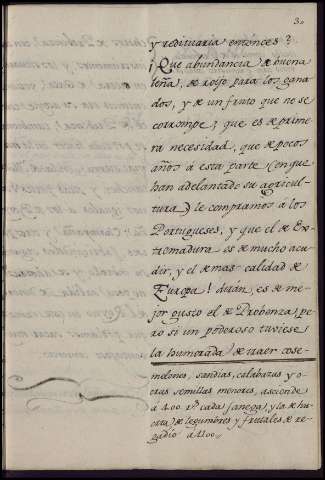 30
y redituaria entónces?
¡Que abundancia de buena
leña, de roijo para los gana
dos, y de un fruto que no se
corrompe; que es de prime
ra necesidad, que de pocos
años á esta parte (en que
han adelantado su agricul
tura) le compramos á los
Portugueses, y que el de Ex
tremadura es de mucho acu
dir, y el de mas calidad de
Europa! dirán, es de me
jor gusto el de Probenza; pe
ro si un poderoso tuviese
la humorada de traer cose
melones, sandias, calabazas y o
tras semillas menores, asciende
á 400 rs. cada fanega, y la de hu
erta de legumbres y frutales de re
gadio á 1100.